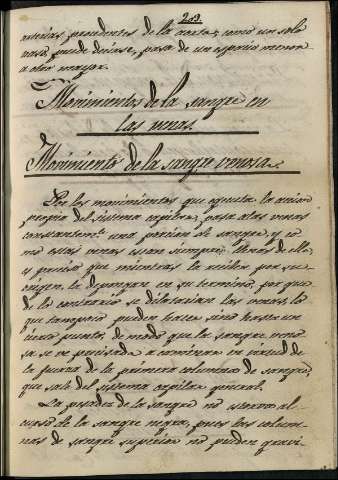 203
arterias procedentes de la aorta, como un solo
vaso, puede decirse, pasa de un espacio menor
a otro mayor.
Movimientos de la sangre en
las venas.
Movimiento de la sangre venosa.
Por los movimientos que ejecuta la accion
propia del sistema capilar, pasa a las venas
constantemte. una porcion de sangre, y co
mo estas venas estan siempre llenas de ella,
es preciso que mientras la reciben por su
origen, la depongan en su termino, por que
de lo contrario se dilatarian las venas, lo
que tampoco pueden hacer sino hasta un
cierto punto, de modo que la sangre veno
sa se ve precisada a caminar en virtud de
la fuerza de la primera columna de sangre,
que sale del sistema capilar general.
La pesadez de la sangre no estorva al
curso de la sangre negra, pues las colum
nas de sangre superior no pueden gravi